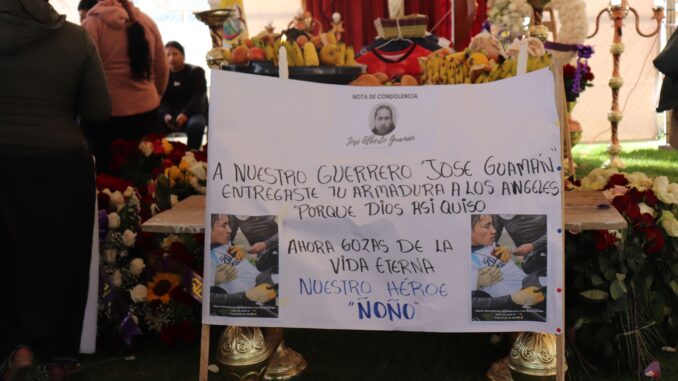 NOTA DE CONDOLENCIA
José Alberto Guamán
A NUESTRO GUERRERO "JOSE GUAMÁN"
ENTREGASTE TU ARMADURA A LOS ANGELES
"PORQUE DIOS ASI QUISO
AHORA GOZAS DE LA
VIDA ETERNA
NUESTRO HÉROE
"ÑOÑO"